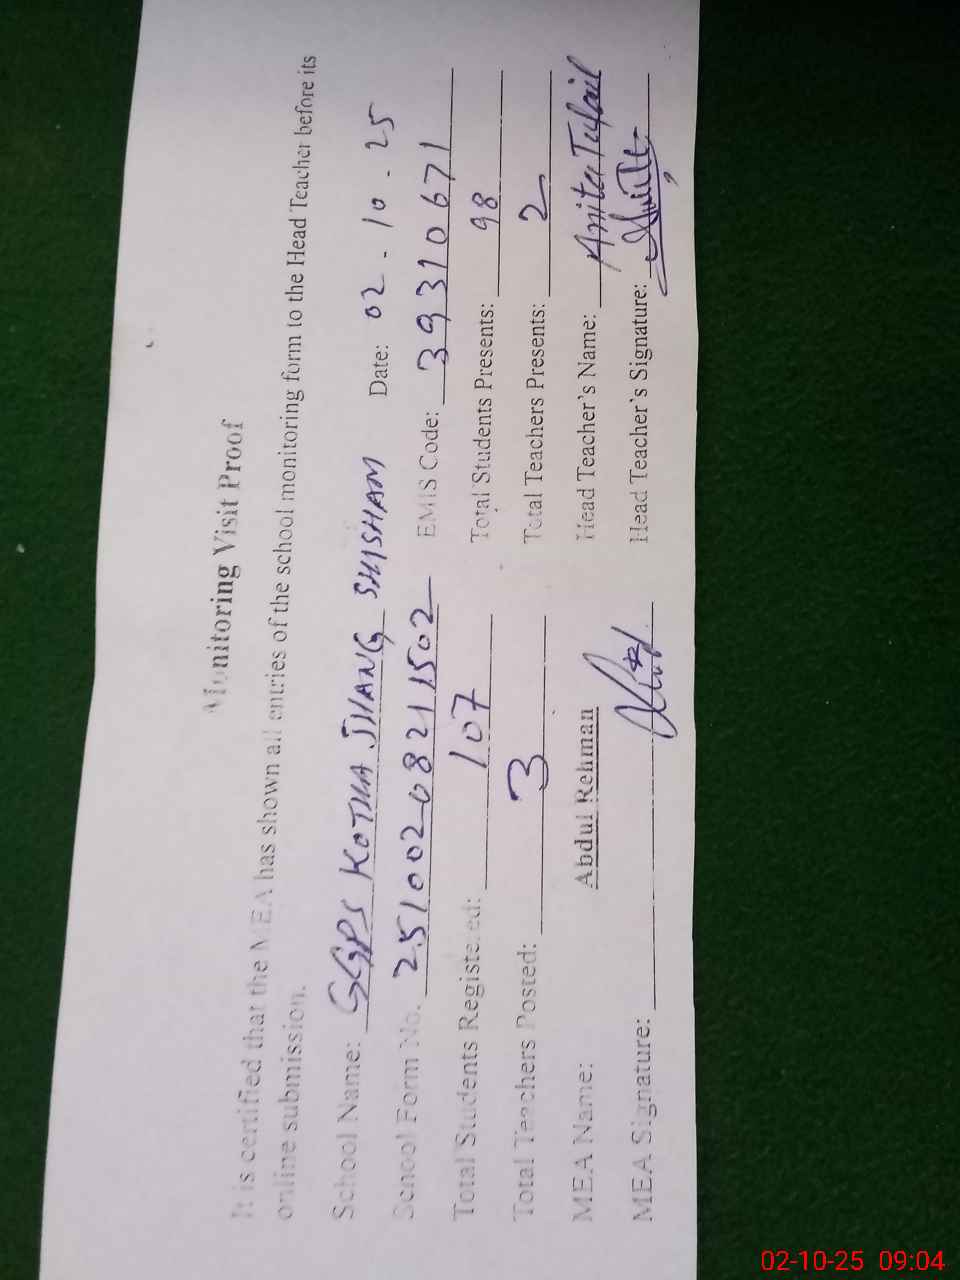 Monitoring Visit Proof
It is certified that the MEA has shown all entries of the school monitoring form to the Head Teacher before its
online submission.
School Name: GGPS KOTHA JHANG SHISHAM Date: 02-10-25
School Form No. 25100208211502 EMIS Code: 39310671
Total Students Registered: 107 Total Students Presents: 98
Total Teachers Posted: 3 Total Teachers Presents: 2
MEA Name: Abdul Rehman Head Teacher's Name: Anita Tufail
MEA Signature: Head Teacher's Signature:
02-10-25 09:04